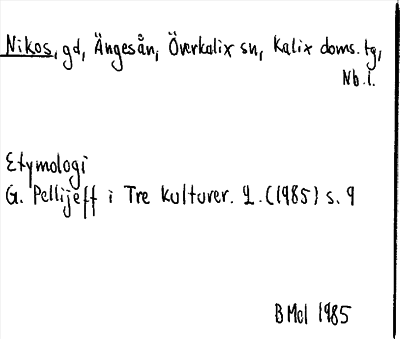 Nikos, gd, Ängesån, Överkalix sn, Kalix doms. tg,
Nb.l.
Etymologi
G. Pellijeff i Tre kulturer. 2. (1985) s. 9
BMol 1985